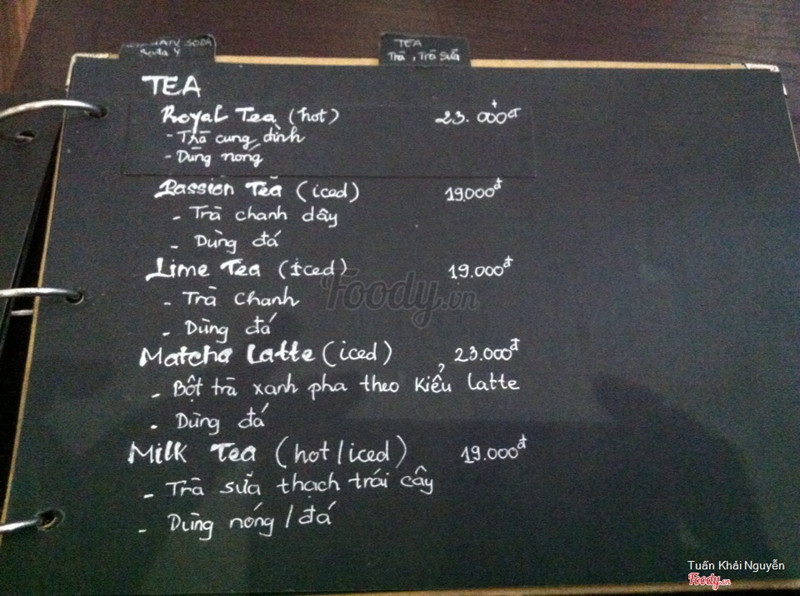 SODA
Soda Ý
TEA
Trà, Trà Sữa
TEA
Royal Tea (hot) 23.000đ
- Trà cung đình
- Dùng nóng
Passion Tea (iced) 19.000đ
- Trà chanh dây
- Dùng đá
Lime Tea (iced) 19.000đ
- Trà chanh
- Dùng đá
Foody.vn
Matcha Latte (iced) 23.000đ
- Bột trà xanh pha theo kiểu latte
- Dùng đá
Milk Tea (hot/iced) 19.000đ
- Trà sữa thạch trái cây
- Dùng nóng/đá
Tuấn Khải Nguyễn
Foody.vn